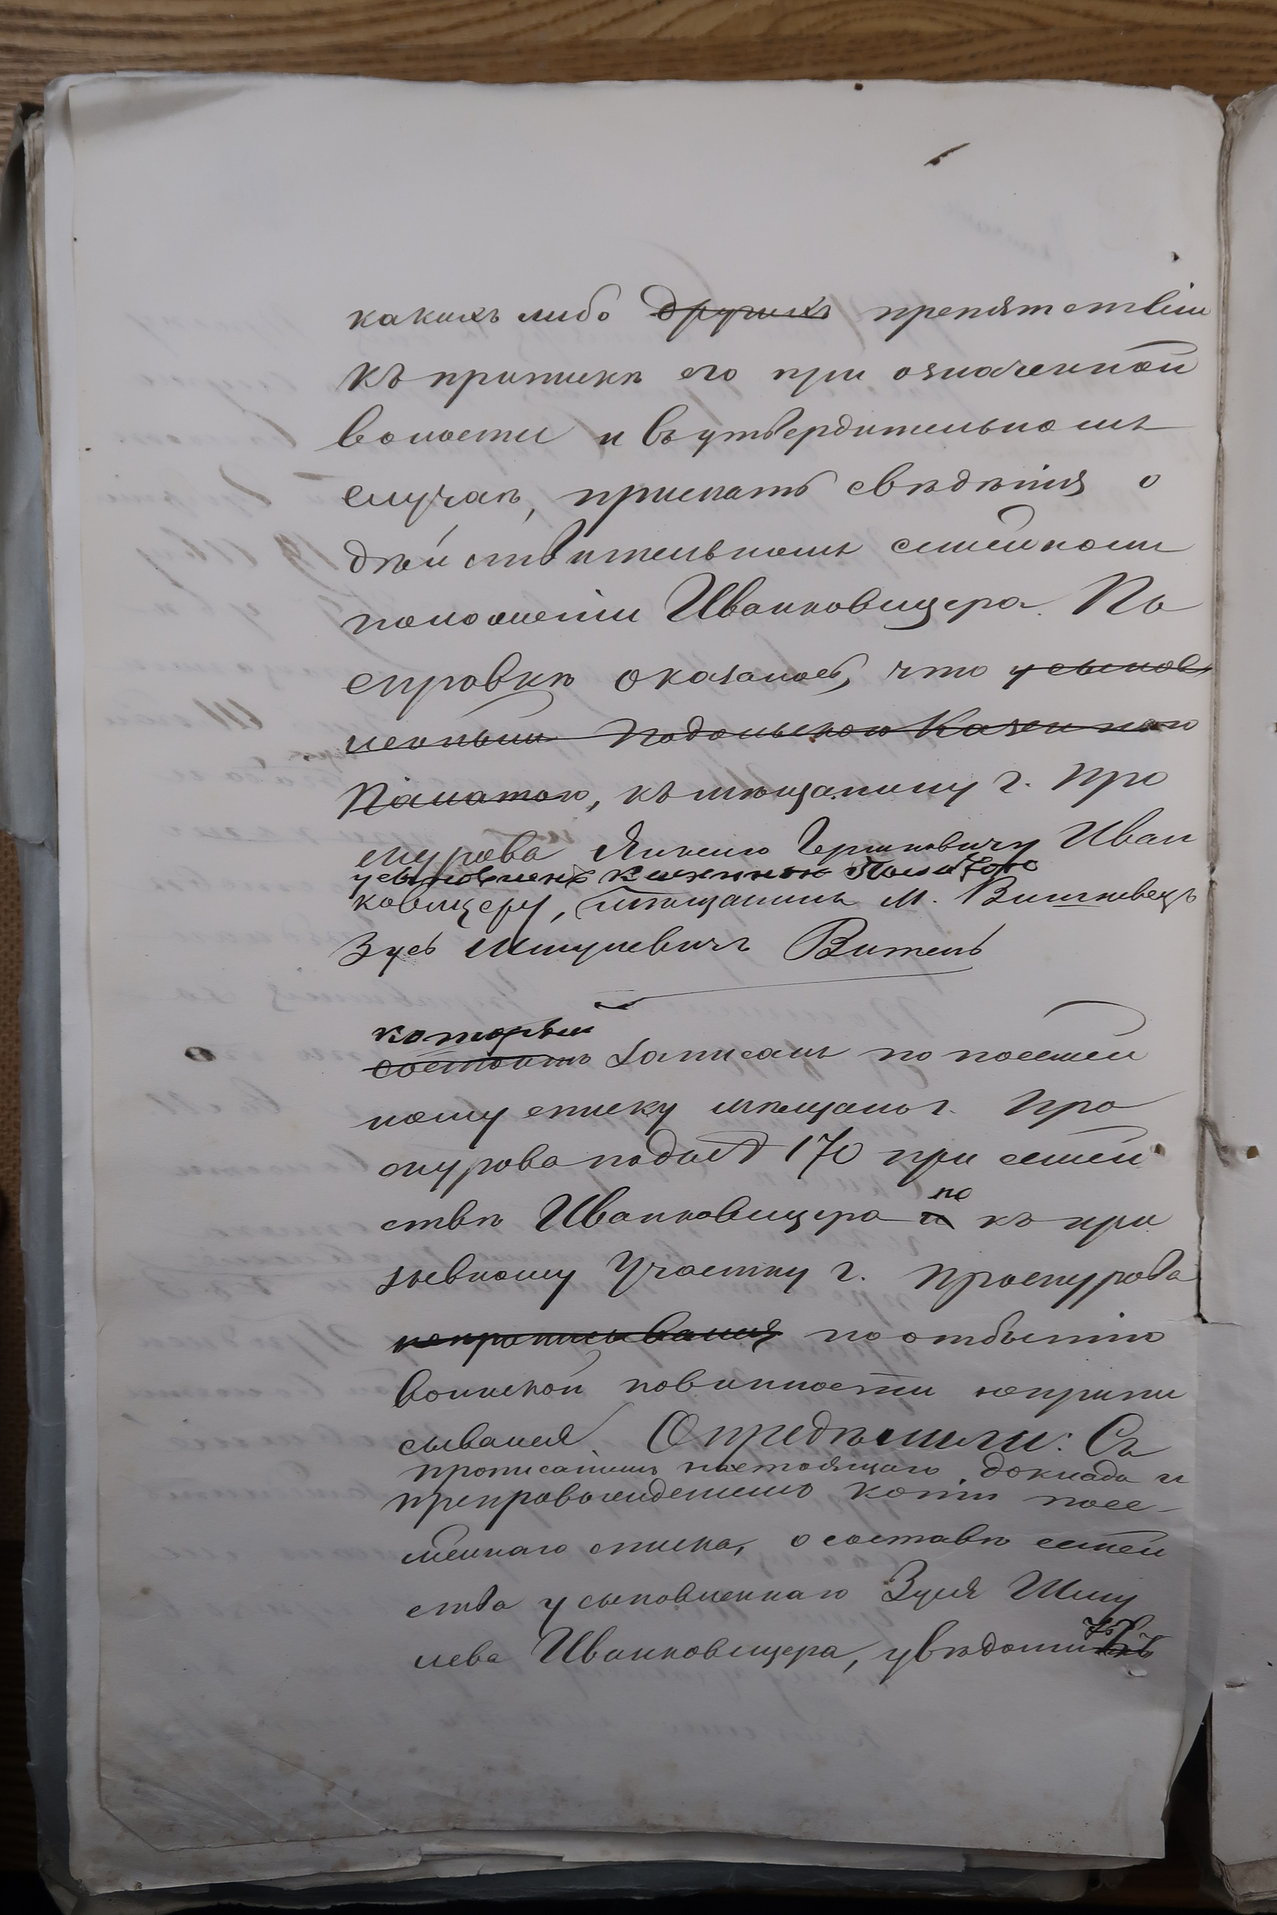 какихъ либо другихъ препятствій
къ припискѣ его при означенной
волости и въ утвердительномъ
случаѣ, прислать свѣдѣнія о
дѣйствительномъ семейномъ
положеніи Иванковицера. По
справкѣ оказалось, что усынов
ленный Подольскою Казенною
Палатою, къ мѣщанину г. Про
скурова Янкелю Гершковичу Иван
усыновленъ Казенною Палатою
ковицеру, мѣщанинъ м. Вишневецъ
Зусь Шмулевичъ Витель
который
состоитъ записанъ по посемей
ному списку мѣщанъ г. Про
скурова подъ № 170 при семей
ствѣ Иванковицера и но къ при
зывному участку г. Проскурова
неприписывался по отбытію
воинской повинности неприпи
сывался. Опредѣлили: Съ
прописаніемъ настоящаго доклада и
препровожденіемъ копіи посе-
мейнаго списка, о составѣ семей
ства усыновленнаго Зуся Шму
лева Иванковицера, увѣдомить